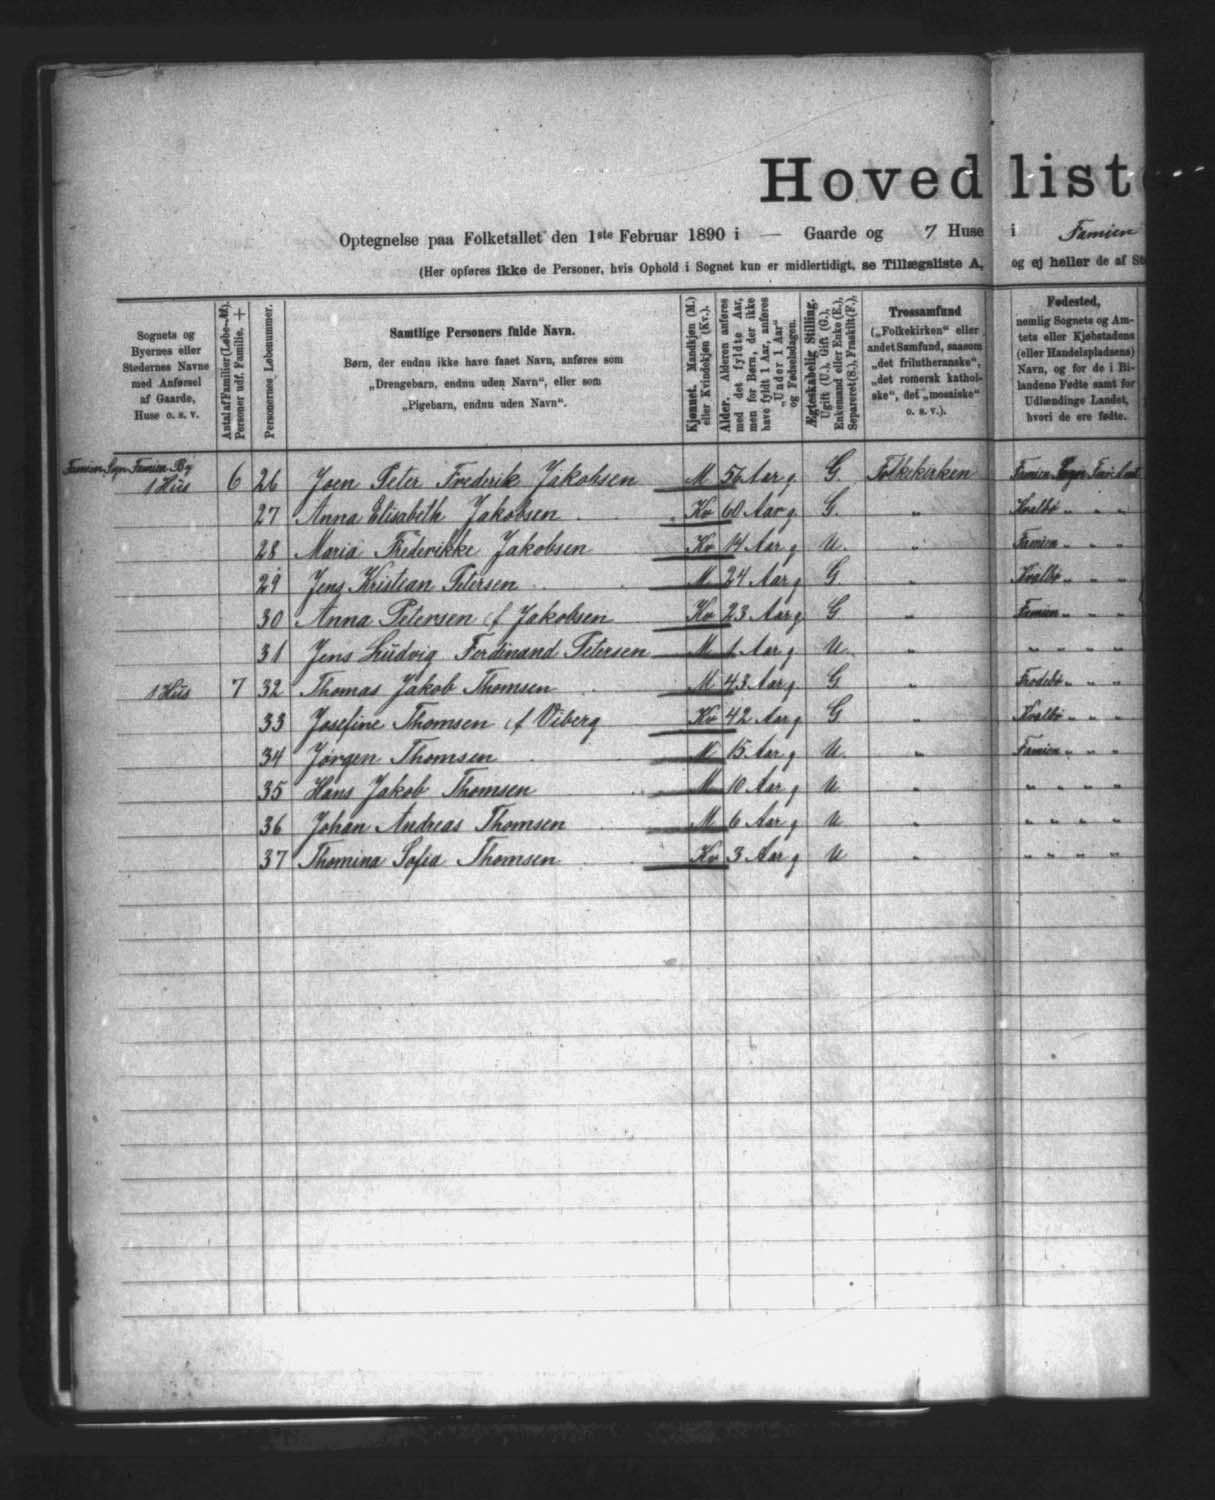 Hovedliste
Optegnelse paa Folketallet den 1ste Februar 1890 i — Gaarde og 7 Huse i Famien
(Her opføres ikke de Personer, hvis Ophold i Sognet kun er midlertidigt, se Tillægsliste A, og ej heller de af
Sognets og
Byernes eller
Stedernes Navne
med Anførsel
af Gaarde,
Huse o. s. v.
Antal af Familier (Løbe-№).
Personer udf. Familie. +
Personernes Løbenummer.
Samtlige Personers fulde Navn.
Børn, der endnu ikke have faaet Navn, anføres som
„Drengebarn, endnu uden Navn“, eller som
„Pigebarn, endnu uden Navn“.
Kjønnet. Mandkjøn (M.)
eller Kvindekjøn (Kv.).
Alder. Alderen anføres
med det fyldte Aar,
men for Børn, der ikke
have fyldt 1 Aar, anføres
„Under 1 Aar“
og Fødselsdagen.
Ægteskabelig Stilling.
Ugift (U.), Gift (G.),
Enkemand eller Enke (E.),
Separeret (S.), Fraskilt (F.).
Trossamfund
(„Folkekirken“ eller
andet Samfund, saasom
„det frilutheranske“,
„det romersk kathol-
ske“, det „mosaiske“
o. s. v.).
Fødested,
nemlig Sognets og Am-
tets eller Kjøbstadens
(eller Handelspladsens)
Navn, og for de i Bi-
landene Fødte samt for
Udlændinge Landet,
hvori de ere fødte.
Famien Sogn Famien By
1 Hus 6 26 Joen Peter Frederik Jakobsen M 56 Aar G. Folkekirken Famien Sogn
27 Anna Elisabeth Jakobsen Kv 60 Aar G. „ Kvalbø „ „ „
28 Maria Frederikke Jakobsen Kv 14 Aar U. „ Famien „ „ „
29 Jens Kristian Petersen M 24 Aar G. „ Kvalbø „ „ „
30 Anna Petersen f Jakobsen Kv 23 Aar G „ Famien „ „ „
31 Jens Ludvig Ferdinand Petersen M 1 Aar U. „ „ „ „ „
1 Hus 7 32 Thomas Jakob Thomsen M 43 Aar G „ Frodebø „ „ „
33 Josefine Thomsen f Viberg Kv 42 Aar G „ Kvalbø „ „ „
34 Jørgen Thomsen M 15 Aar U. „ Famien „ „ „
35 Hans Jakob Thomsen M 10 Aar U „ „ „ „ „
36 Johan Andreas Thomsen M 6 Aar U „ „ „ „ „
37 Thomina Sofia Thomsen Kv 3 Aar U „ „ „ „ „